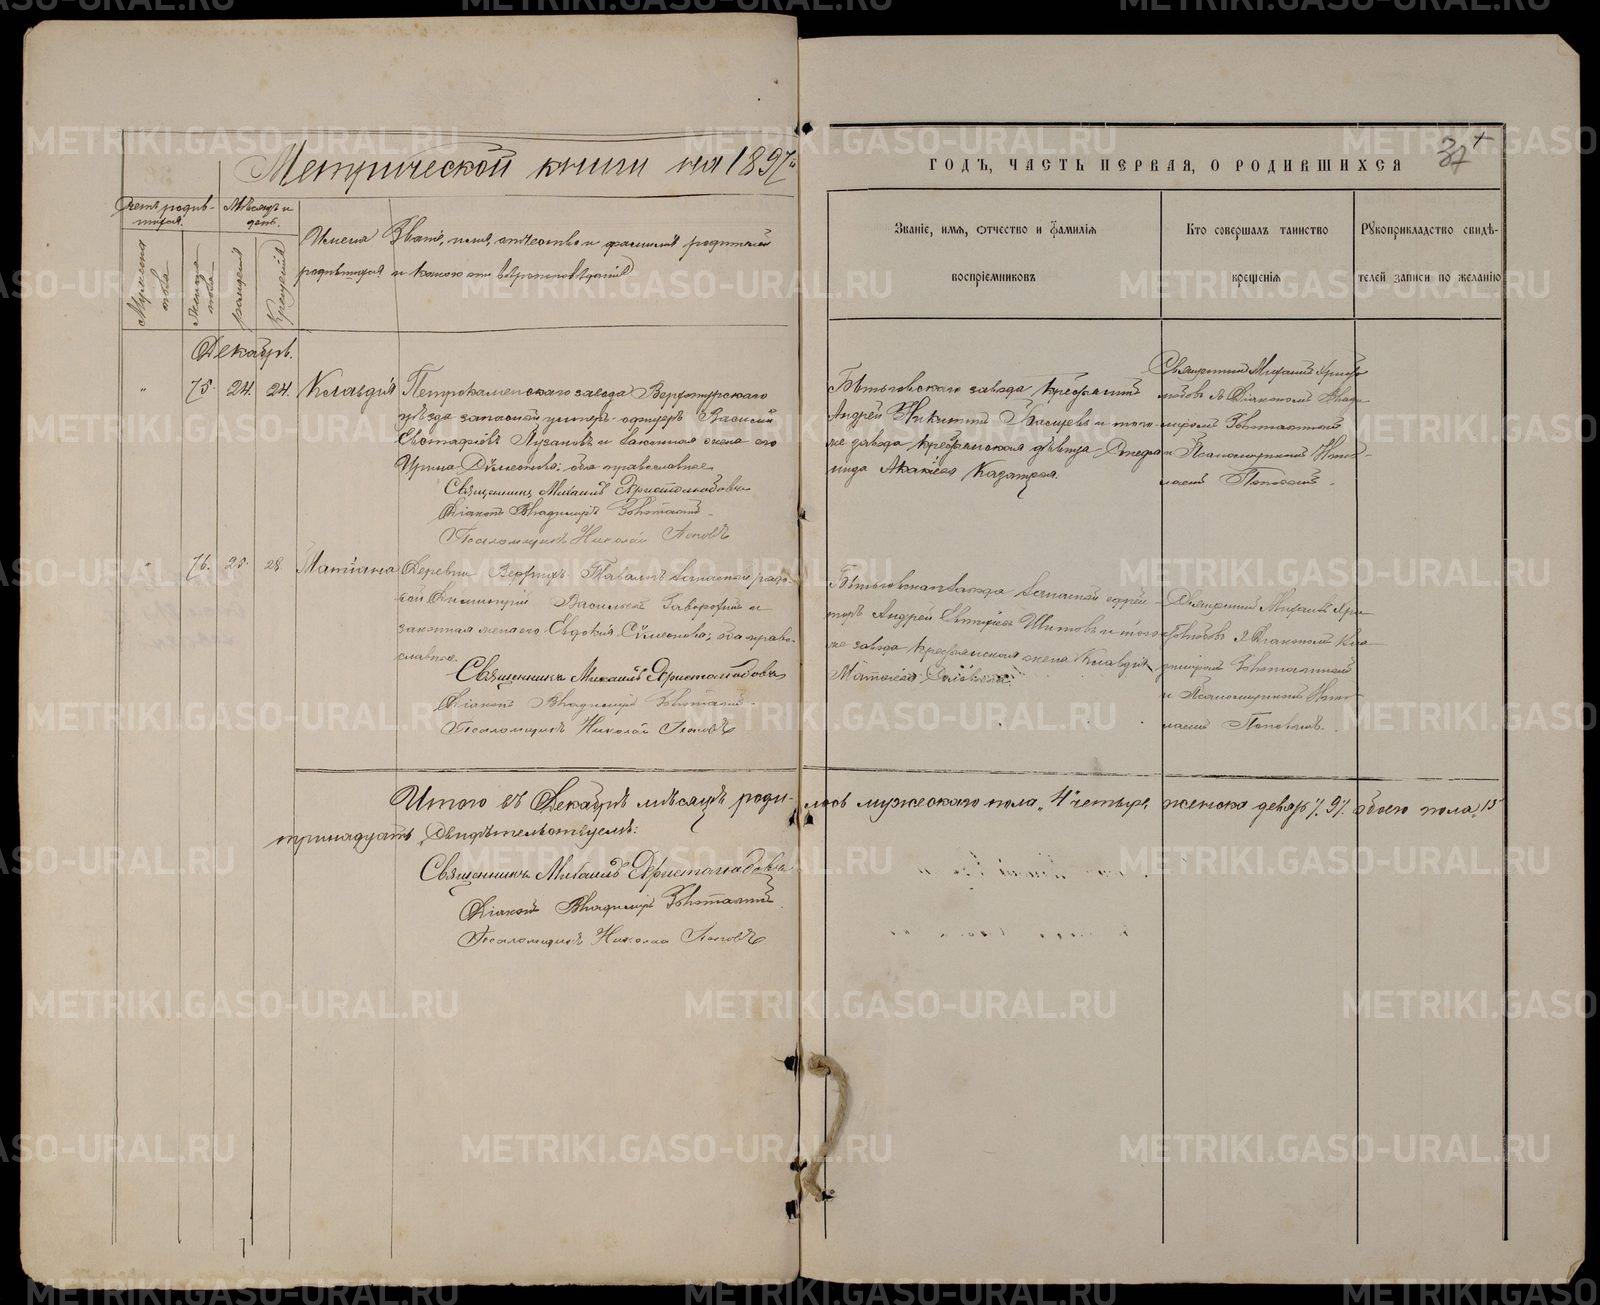 Метрической книги на 1897й
ГОДЪ, ЧАСТЬ ПЕРВАЯ, О РОДИВШИХСЯ
37
Счетъ родив-
шихся.
Мѣсяцъ и
день.
Мужеска
пола
Женска
пола
рожденія
Крещенія
Имена
родившихся
Званіе, имя, отчество и фамилія родителей
и какого они вѣроисповѣданія
Званіе, имя, отчество и фамилія
воспріемниковъ
Кто совершалъ таинство
крещенія
Рукоприкладство свидѣ-
телей записи по желанію
Декабрь.
75. 24. 24. Клавдія
Петрокаменскаго завода Верхотурскаго
уѣзда запасной унтеръ-офицеръ Василій
Евстафіевъ Лузановъ и законная жена его
Ирина Симеонова; оба православные
Священникъ Михаилъ Аристолюбовъ
Діаконъ Владимиръ
Псаломщикъ Николай Поповъ
завода крестьянинъ
Андрей Никитинъ и того-
же завода крестьянская дѣвица
Акакіева
Священникъ Михаилъ Аристо-
любовъ съ Діакономъ Влади-
миромъ
и Псаломщикомъ Нико-
лаемъ Поповымъ.
76. 25. 28. Татіана
Деревни Верхнихъ Таволгъ запасной рядо-
вой Димитрій Васильевъ и
законная жена его Евдокія Симеонова; оба право-
славные.
Священникъ Михаилъ Аристолюбовъ
Діаконъ Владимиръ
Псаломщикъ Николай Поповъ
завода запасной ефрей-
торъ Андрей Шитовъ и того
же завода крестьянская жена Клавдія
Священникъ Михаилъ Ари-
столюбовъ съ Діакономъ Вла-
димиромъ
и Псаломщикомъ Нико-
лаемъ Поповымъ.
Итого въ Декабрѣ мѣсяцѣ роди-лось мужескаго пола „4" четыре, женска девять „9", обоего пола „13"
тринадцать Свидѣтельствуемъ:
Священникъ Михаилъ Аристолюбовъ
Діаконъ Владимиръ
Псаломщикъ Николай Поповъ
METRIKI.GASO-URAL.RU